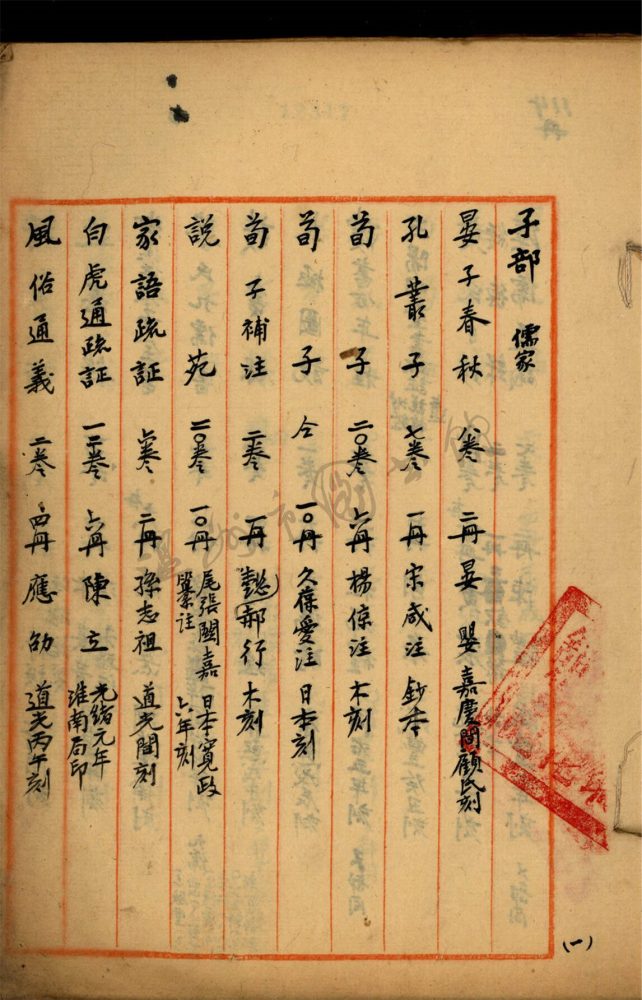 子部 儒家
晏子春秋 八卷 二冊 晏嬰 嘉慶間顧氏刻
孔叢子 七卷 一冊 宋咸注 鈔本
荀子 二〇卷 六冊 楊倞注 木刻
荀子 仝 一〇冊 久葆愛注 日本刻
荀子補注 二卷 一冊 郝懿行 木刻
說苑 二〇卷 一〇冊 尾張關嘉纂註 日本寬政六年刻
家語疏証 六卷 二冊 孫志祖 道光間刻
白虎通疏証 一二卷 六冊 陳立 光緒元年淮南局印
風俗通義 二卷 四冊 應劭 道光丙午刻
(一)